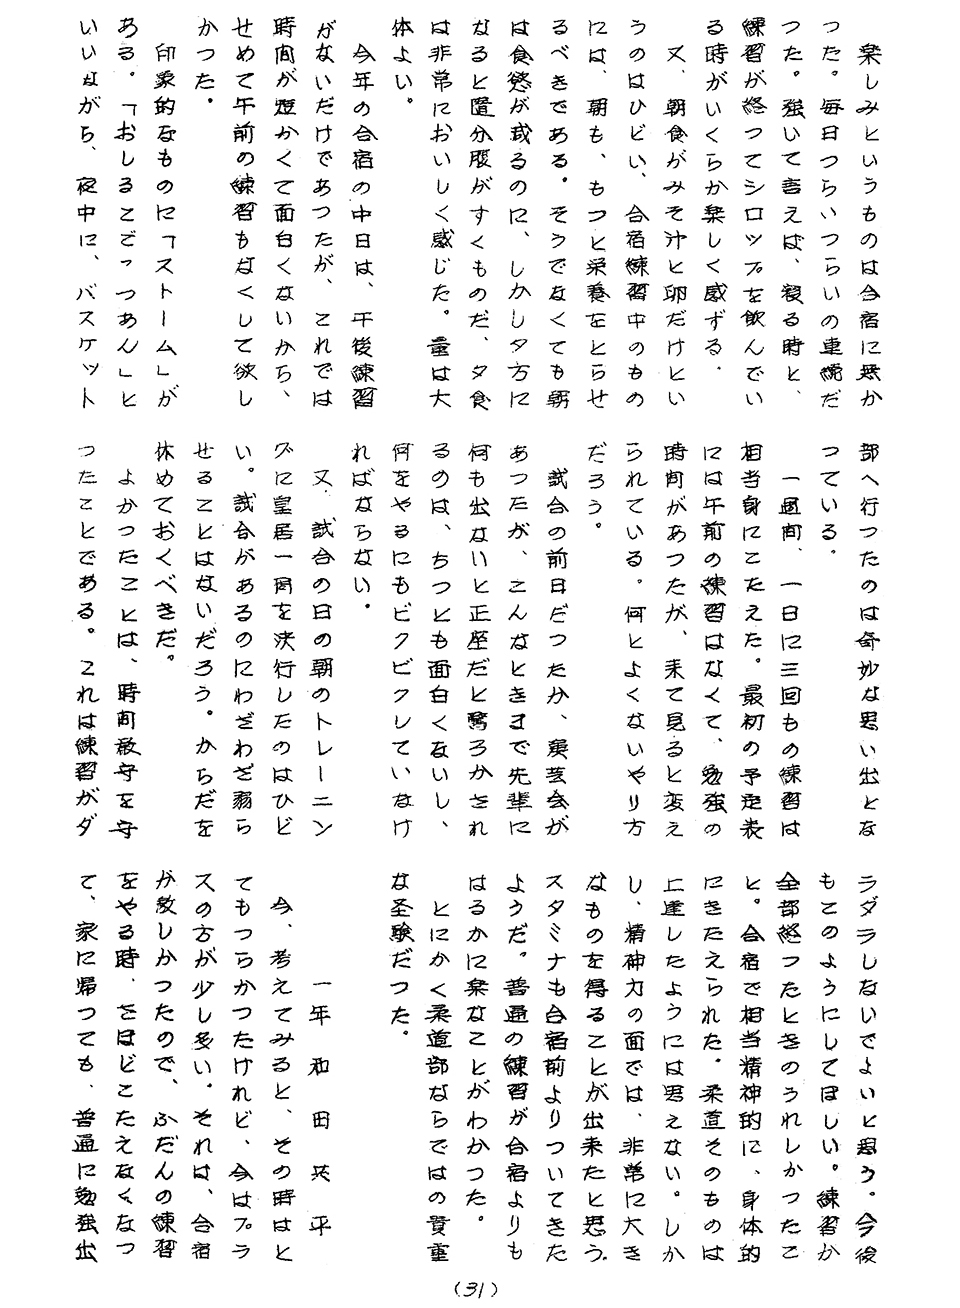 楽しみというものは合宿に無か
つた。毎日つらいつらいの連続だ
つた。強いて言えば、寝る時と、
練習が終つてシロップを飲んでい
る時がいくらか楽しく感ずる。
又、朝食がみそ汁と卵だけとい
うのはひどい、合宿練習中のもの
には、朝も、もつと栄養をとらせ
るべきである。そうでなくても朝
は食慾が減るのに、しかし夕方に
なると随分腹がすくものだ、夕食
は非常においしく感じた。量は大
体よい。
今年の合宿の中日は、午後練習
がないだけであつたが、これでは
時間が短かくて面白くないから、
せめて午前の練習もなくして欲し
かつた。
印象的なものに「ストーム」が
ある。「おしるこでっつあん」と
いいながら、夜中に、バスケット
部へ行つたのは奇妙な思い出とな
つている。
一週間、一日に三回もの練習は
相当身にこたえた。最初の予定表
には午前の練習はなくて、勉強の
時間があつたが、来て見ると変え
られている。何とよくないやり方
だろう。
試合の前日だつたか、演芸会が
あつたが、こんなときまで先輩に
何も出ないと正座だと驚ろかされ
るのは、ちつとも面白くないし、
何をやるにもビクビクしていなけ
ればならない。
又、試合の日の朝のトレーニン
グに皇居一周を決行したのはひど
い。試合があるのにわざわざ弱ら
せることはないだろう。からだを
休めておくべきだ。
よかつたことは、時間厳守を守
つたことである。これは練習がダ
ラダラしないでよいと思う。今後
もこのようにしてほしい。練習が
全部終つたときのうれしかつたこ
と。合宿で相当精神的に、身体的
にきたえられた。柔道そのものは
上達したようには思えない。しか
し、精神力の面では、非常に大き
なものを得ることが出来たと思う。
スタミナも合宿前よりついてきた
ようだ。普通の練習が合宿よりも
はるかに楽なことがわかつた。
とにかく柔道部ならではの貴重
な圣験だつた。
一年 和田 共平
今、考えてみると、その時はと
てもつらかつたけれど、今はプラ
スの方が少し多い。それは、合宿
が激しかつたので、ふだんの練習
をやる時、さほどこたえなくなつ
て、家に帰つても、普通に勉強出
(31)